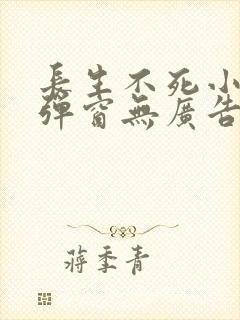 長生不死小
彈窗無廣告
蔣季青